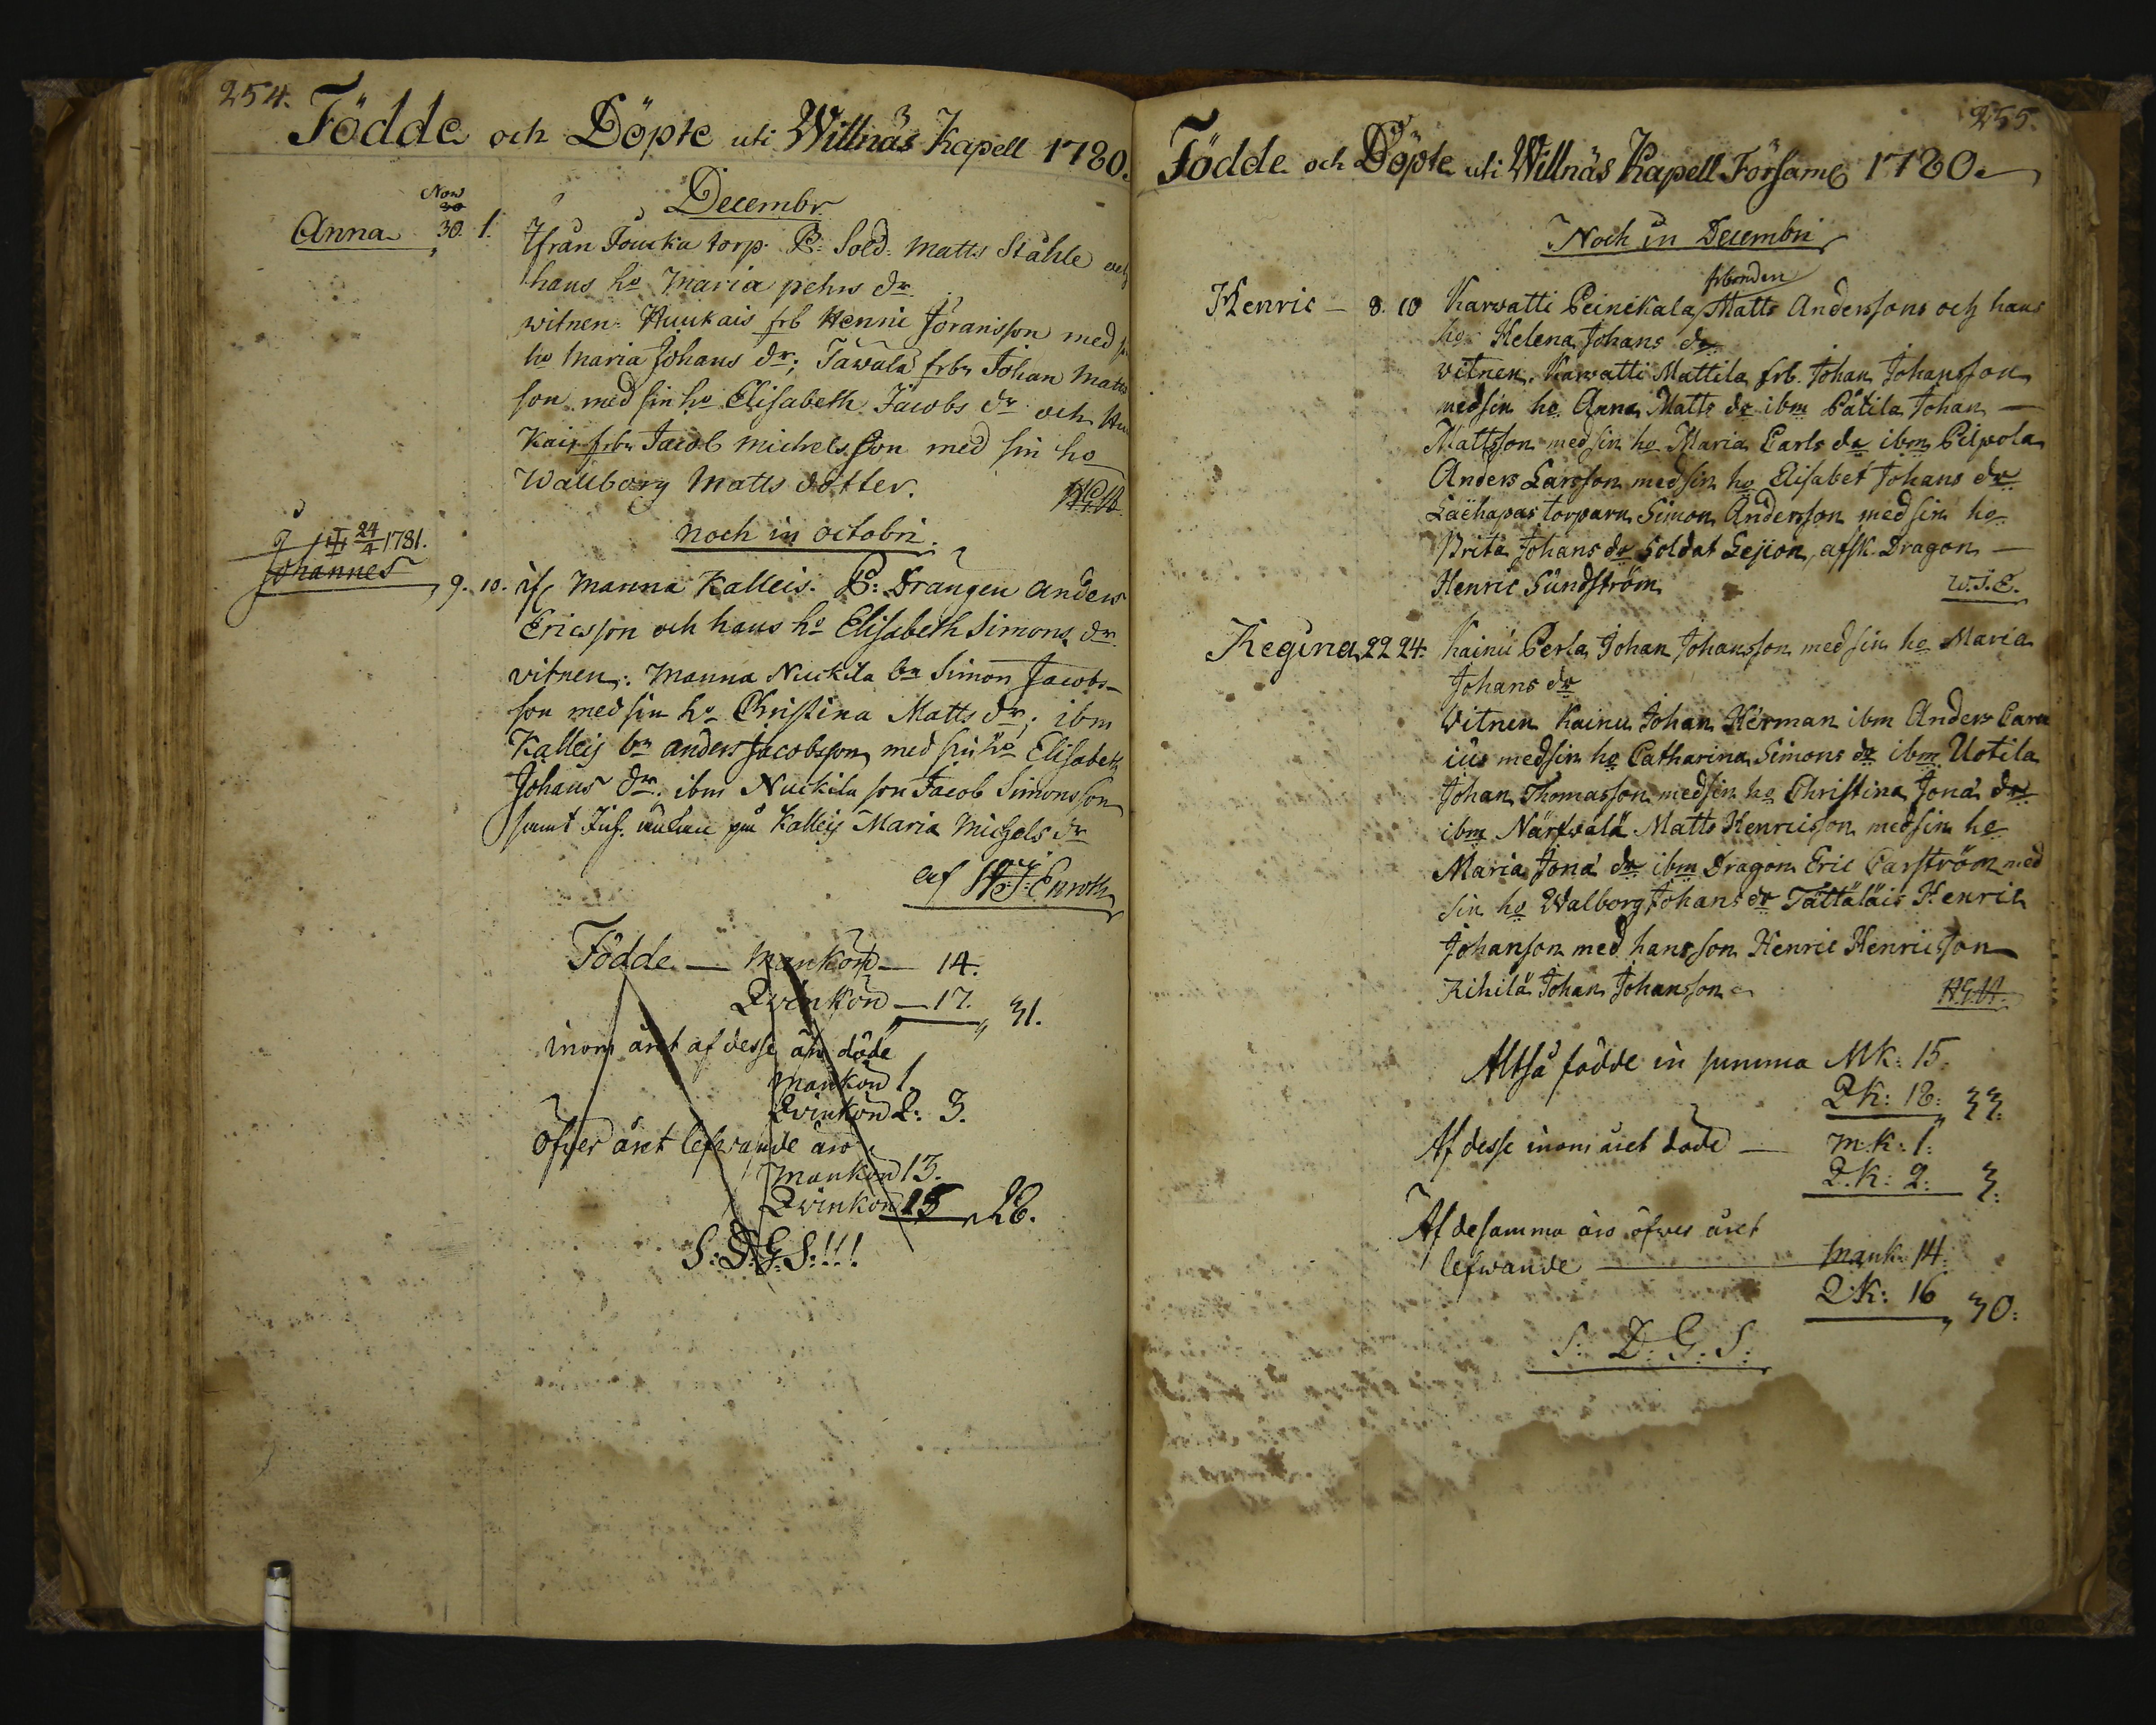 254.
Födde och Döpte uti Willnäs Kapell 1780.
Decembr
Nov
30
Anna 30. 1. Ifrån Jouka torp. B: Sold: Matts Ståhle och
hans ho Maria pehrs dr
witnen: Huukais frb Henric Jöransson med
ho Maria Johans dr; Tawala frbr Johan Matts
son med sin ho Elisabeth Jacobs dr och Hu
kais frbr Jacob Michelsson med sin ho
Wallborg Matts dotter.
noch in octobri.
24/4 1781.
Johannes
9. 10. if Manna Kalleis. B: Drängen Anders
Ericsson och hans ho Elisabeth Simons dr
vitnen: Manna Nuckila br Simon Jacobs
son med sin ho Christina Matts dr; ibm
Kalleis br anders Jacobsson med sin ho Elisabeth
Johans dr. ibm Nuckila son Jacob Simonsson
samt på Kalleis Maria Michels dr
af Enroth
Födde — Mankön — 14.
Qvinkön — 17. 31.
inom året af desse äro döde
Mankön 1.
Qvinkön 2: 3.
Öfver året lefwande äro
Mankön 13.
Qvinkön 15 28.
S: D: G: S:!!!
255.
Födde och Döpte uti Willnäs Kapell Församl 1780.
Noch in Decembri
frbonden
Henric — 8. 10 Karwatti Peinikala Matts Anderssons och hans
ho Helena Johans dr
vitnen. Karwatti Mattila frb. Johan Johansson
med sin ho Anna Matts dr ibm Pätila Johan —
Mattsson med sin ho Maria Carls dr ibm Pilpola
Anders Larsson med sin ho Elisabet Johans dr
torparn Simon Andersson med sin ho
Brita Johans dr Soldat Lejion, afsk. Dragon —
Henric Sundström
W.J.E.
Regina 22 24. Kainu Perla Johan Johansson med sin ho Maria
Johans dr
Vitnen Kainu Johan Herman ibm Anders Care
ius med sin ho Catharina Simons dr ibm Uotila
Johan Thomasson med sin ho Christina Jona dr
ibm Närwälä Matts Henricsson med sin ho
Maria Jona dr ibm Dragon Eric Carström med
sin ho Walborg Johans dr Tättäläis Henric
Johanson med hans son Henric Henricsson
Kihilä Johan Johansson
Altså födde in summa MK: 15.
QK: 18: 33:
Af desse inom året döde — M:K: 1:
Q.K: 2: 3:
Af desamma äro öfver året
lefwande — Mank: 14:
Q:K: 16 30:
S: D: G: S: